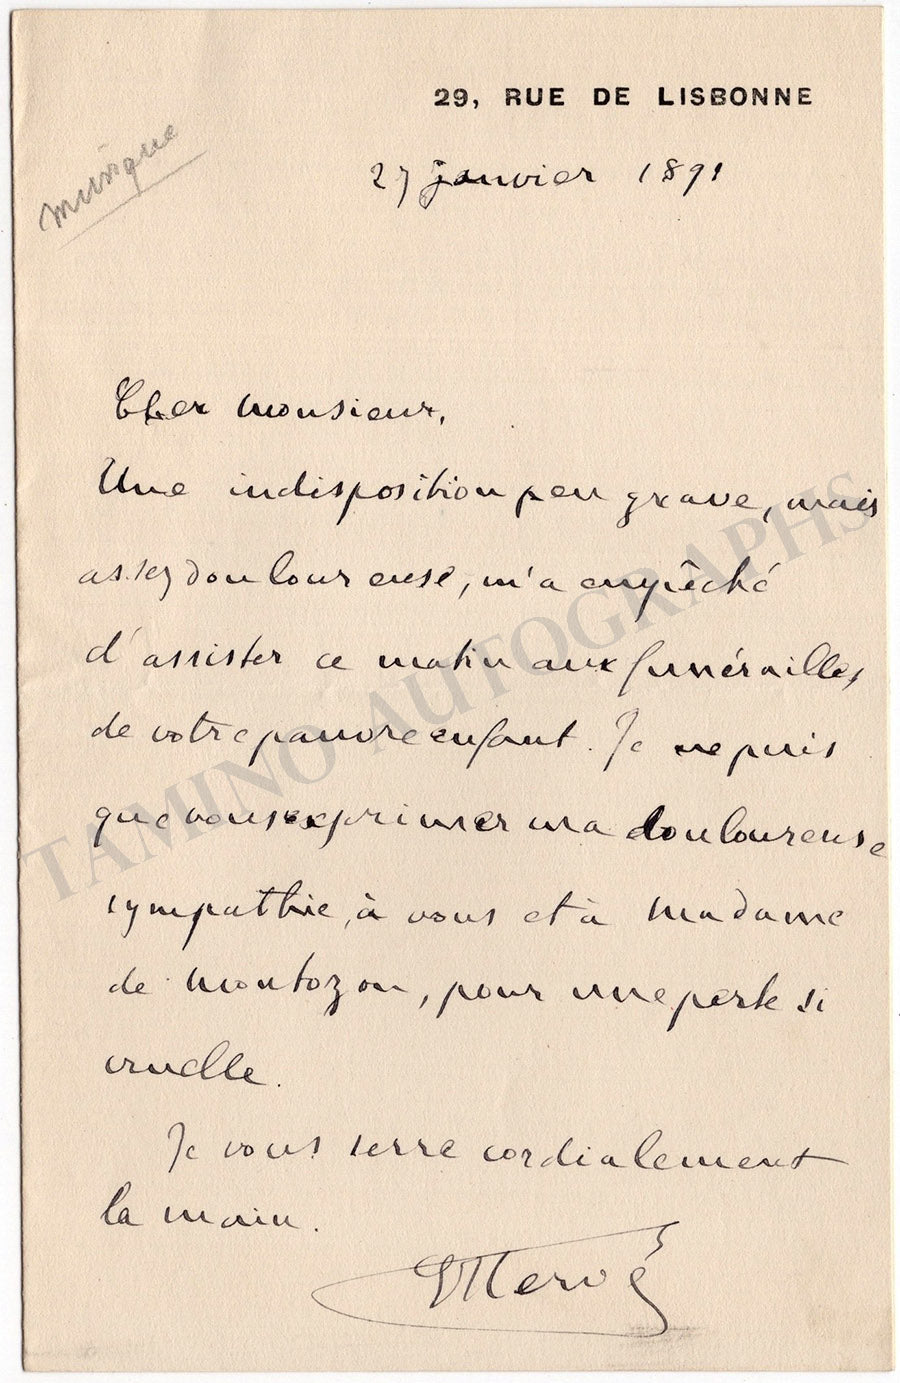 29, RUE DE LISBONNE
musique
27 janvier 1891
Cher Monsieur,
Une indisposition peu grave, mais
assez douloureuse, m'a empêché
d'assister ce matin aux funérailles
de votre pauvre enfant. Je ne puis
que vous exprimer ma douloureuse
sympathie, à vous et à Madame
de Montozon, pour une perte si
cruelle.
Je vous serre cordialement
la main.
Hervé
TAMINO AUTOGRAPHS